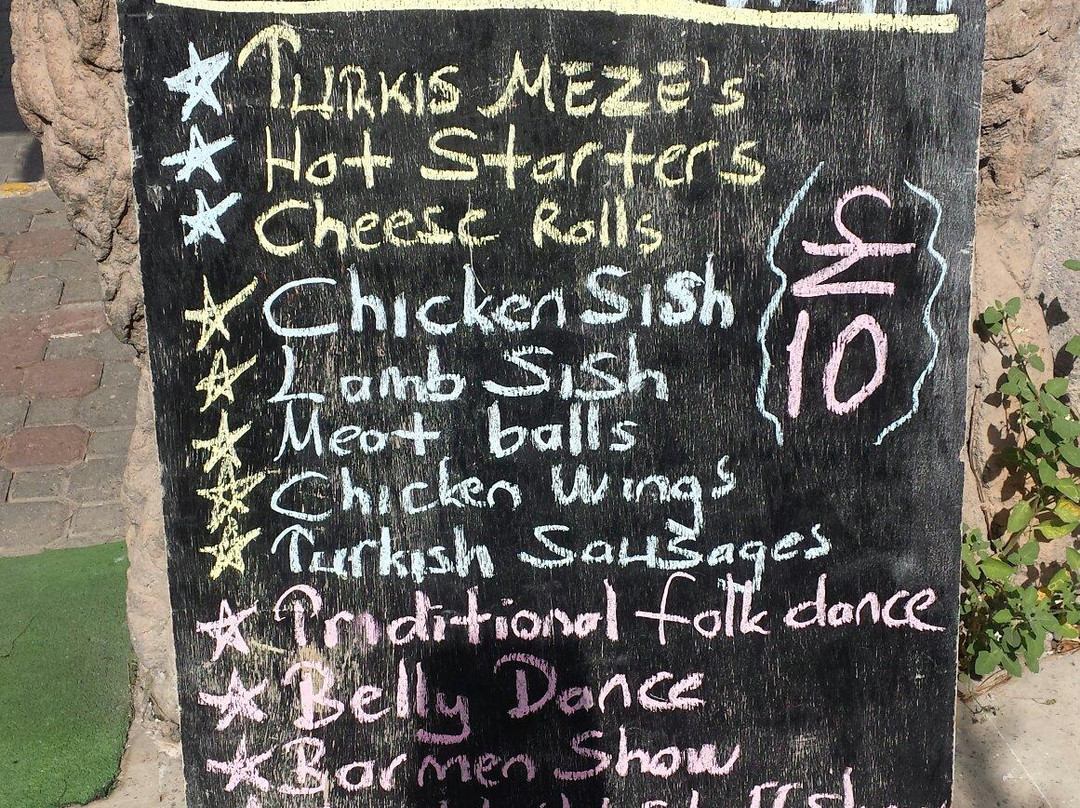 TURKIS MEZE's
Hot Starters
Cheese Rolls
Chicken Sish
Lamb Sish
Meat balls
Chicken Wings
Turkish Sausages
Traditional folk dance
Belly Dance
Barmen Show
10